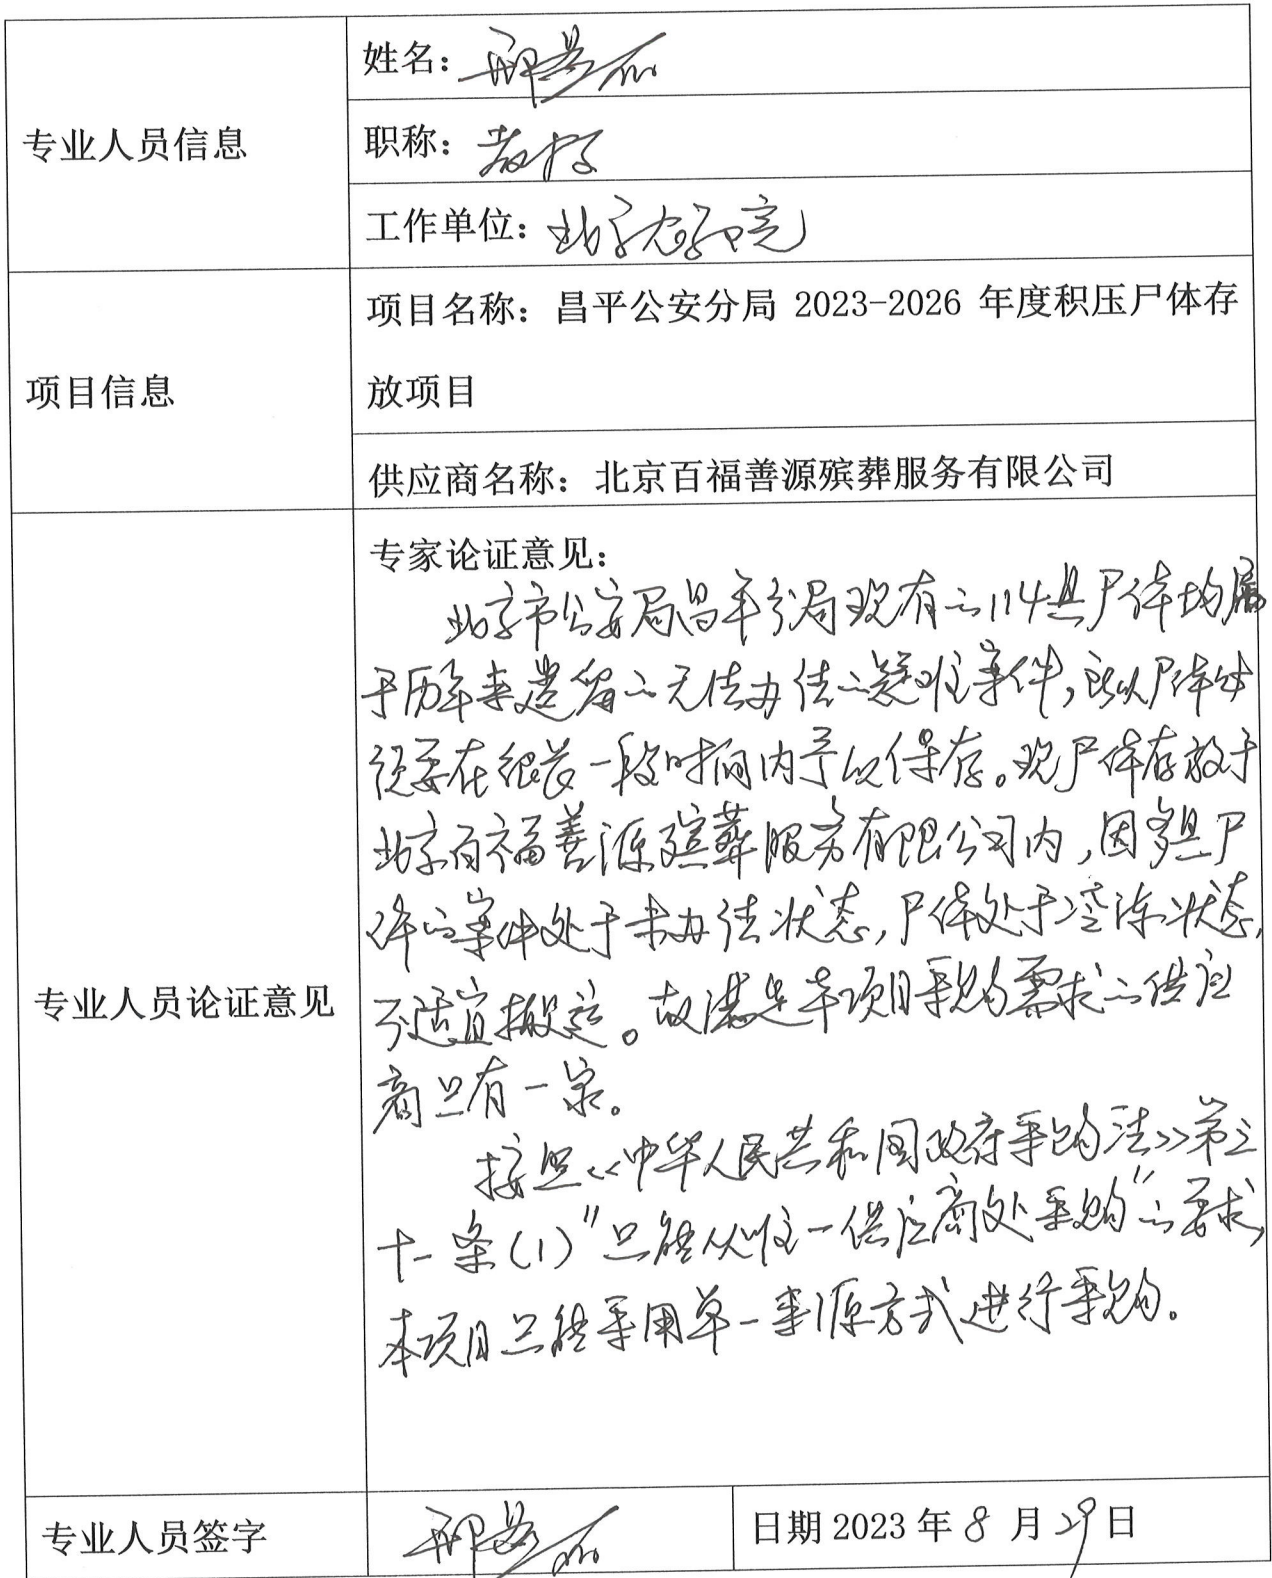 专业人员信息
姓名：
职称：教授
工作单位：北京农学院
项目信息
项目名称：昌平公安分局 2023-2026 年度积压尸体存
放项目
供应商名称：北京百福善源殡葬服务有限公司
专业人员论证意见
专家论证意见：
北京市公安局昌平分局现有的114具尸体均属
于历年来遗留的无法办结的疑难案件，所以尸体
须要在很长一段时间内予以保存。现尸体存放于
北京百福善源殡葬服务有限公司内，因多具尸
体的案件处于未办结状态，尸体处于冷冻状态，
不适宜搬运。故满足本项目采购需求的供应
商只有一家。
按照《中华人民共和国政府采购法》第三
十一条（1）"只能从唯一供应商处采购"的要求，
本项目只能采用单一来源方式进行采购。
专业人员签字
日期 2023 年 8 月 29 日